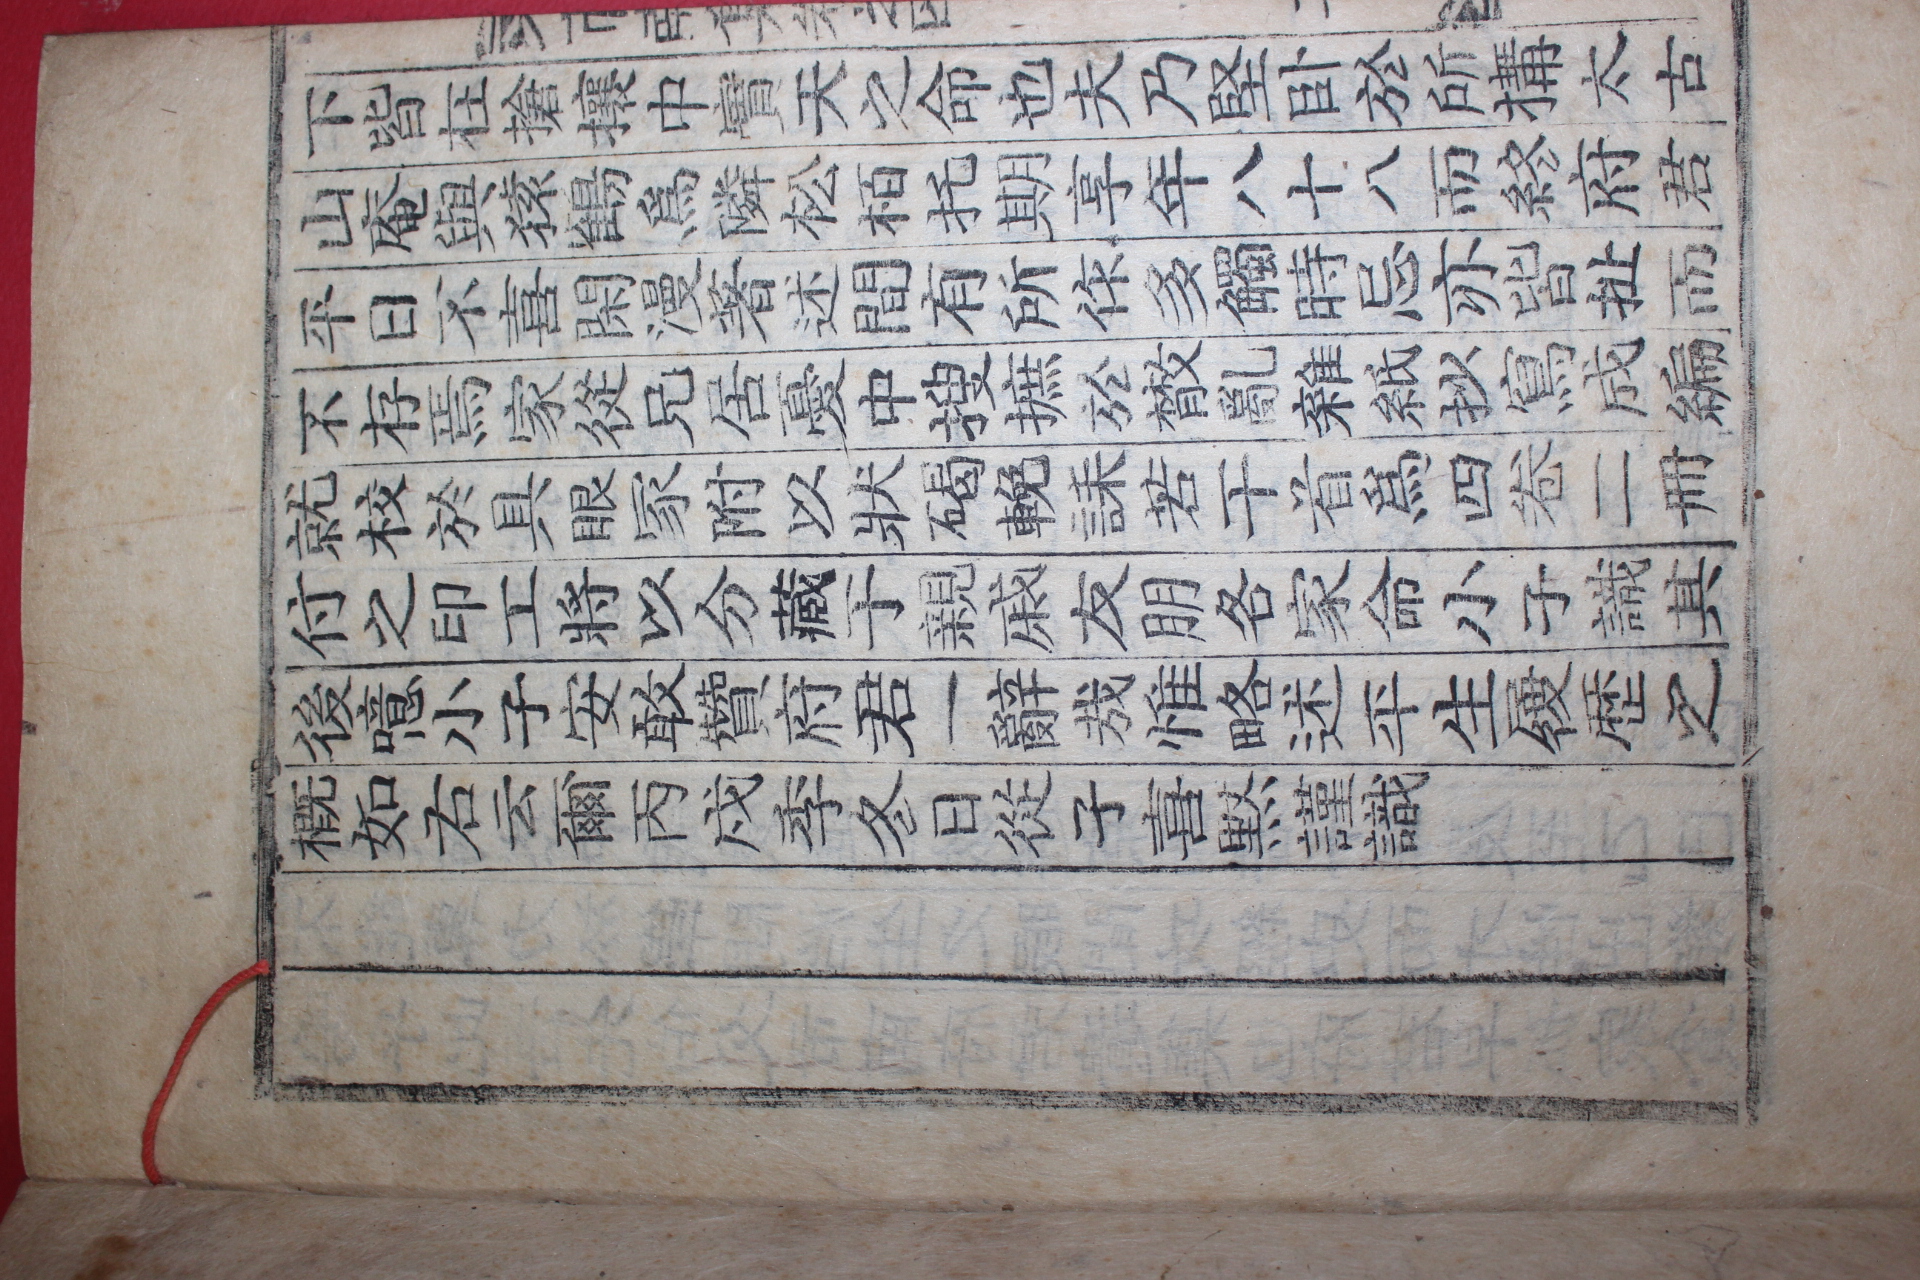 下皆在搶攘中實天之命也夫乃堅卧於所搆太古
山庵與猿鶴爲隣松栢托期享年八十八而終府君
平日不喜閑漫著述間有所作多觸時忌亦皆扯而
不存焉家從兄居憂中搜摭於散亂雜紙抄寫成編
就校於具眼家附以狀碣輓誄若干首爲四卷二冊
付之印工將以分藏于親戚友朋各家命小子識其
後噫小子安敢贊府君一辭哉惟略述平生履歷之
概如右云爾丙戌季冬日從子喜黙謹識